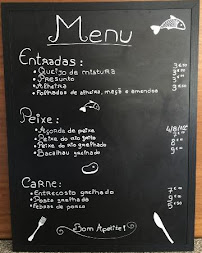 Menu
Entradas:
• Queijo de mistura
• Presunto
• Alheira
• Folhados de alheira, maçã e amendoa
Peixe:
• Açorda de peixe
• Peixe do rio frito
• Peixe do rio grelhado
• Bacalhau grelhado
Carne:
• Entrecosto grelhado
• Posta grelhada
• Febras de porco
Bom Apetite!